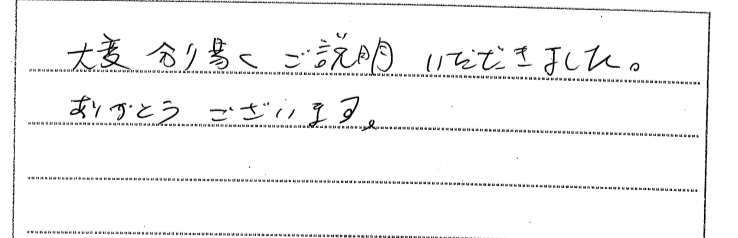 大変分り易くご説明いただきました。
ありがとうございます。